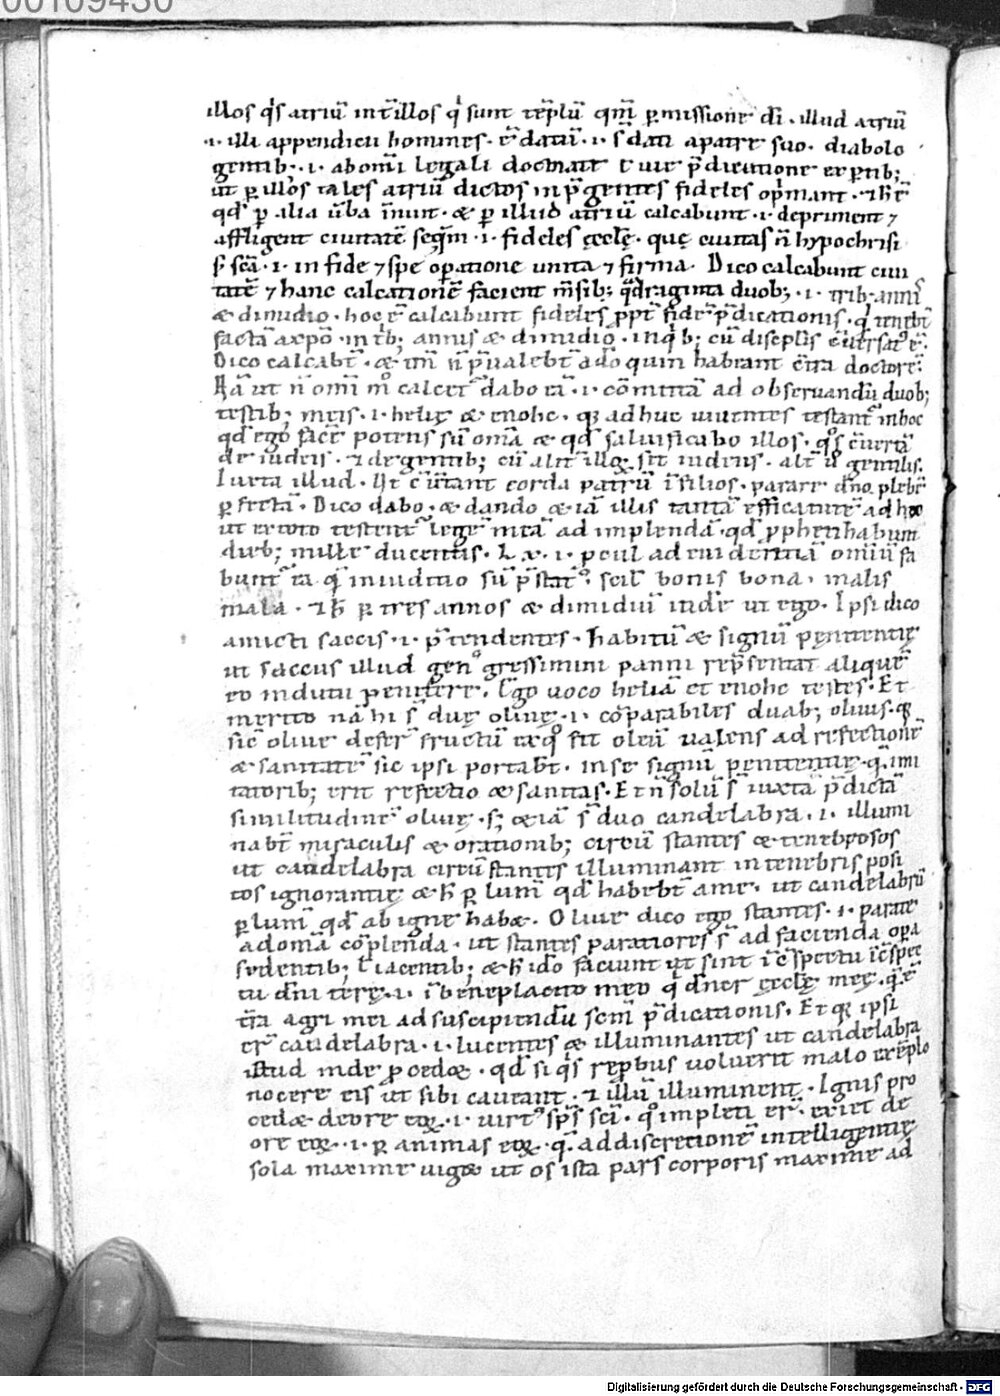 00109430
illos q̓s atriũ int̃ illos q̓ sunt tẽplũ qm̃ ꝑmissione dĩ · illud atriũ
·i· illi appendicii homines · ẽ datũ · i · s̃ dati a patre suo · diabolo
gentib; · i · abomĩ legali
ut ꝑ illos tales atriũ dictos in p̃ gentes fideles op̃mant · ⁊ h̃ ẽ
qd̃ ꝑ alia ũba ĩnuit · & ꝑ illud atriũ calcabunt · i · depriment ⁊
affligent ciuitatẽ · i · fideles ęcclę · quę ciuitas ñ hypochrisi
s; scã · i · in fide ⁊ spe operatione unita ⁊ firma · Dico calcabunt ciui
tatẽ ⁊ hanc calcationẽ facient m̃sib; q̃draginta duob; · i · trib; annis
& dimidio · hoc ẽ calcabunt fideles ꝓpt̃ fidẽ p̃dicationis · q̃
facta a xp̃o · in t̃b; annis & dimidio · inq̃b; cũ discipĩis
Dico calcabt̃ · & tm̃ ñ p̃ualebt̃ adeo quin habeant doctores
Nã ut ñ omĩ m̊ calcet̃ dabo eã · i · cõmittã ad obseruandũ duob;
testib; meis · i · helię & enohc · q̃ adhuc uiuentes testant̃ in hoc
qd̃ ego facẽ potens sũ om̃a & qd̃ saluificabo illos · q̊s c̃uertã
de iudeis · ⁊ de gentib; cũ alt̃ illoꝝ sit iudeus · alt̃ u̓ gentilis ·
Iuxta illud · Ut c̃uertant corda patrũ ĩ filios · parare dño plebẽ
ꝑfectã · Dico dabo · & dando & iã illis tantã efficatiã ad hoc
ut ex toto testent̃ legẽ meã ad implendã · qd̃ ꝓphetabunt
dieb; mille ducentis · LX · i · ad euidentiã omiũ fa
bunt̃ ea q̃ in iuditio sũ p̃stat̃ · scil̃ bonis bona · malis
mala · ⁊ h̃ ꝑ tres annos & dimidiũ inde ut ego · Ipsi dico
amicti saccis · i · p̃tendentes · habitũ & signũ pęnitentię
ut saccus illud gen̊ grossimini panni rep̃sentat aliquẽ
eo induti penitere · Ego uoco heliã et enohc testes · Et
merito nã hi s̃ duę oliuę · i · cõparabiles duab; oliuis · q̃
sic̃ oliue defer̃ fructũ ex q̊ fit oleũ ualens ad refectionẽ
& sanitatẽ sic ipsi portabt̃ · in se signũ penitentię · q̃ imi
tatorib; erit refectio & sanitas · Et ñ solũ s̃ iuxtã p̃dictã
similitudinẽ oliuę · s; & iã s̃ duo candelabra · i · illumi
nabt̃ miraculis & orationib; circũ stantes & tenebrosos
ut candelabra circũ stantes illuminant in tenebris posi
tos ignorantię & h̃ ꝑ lumĩ qd̃ habebt̃ a me · ut candelabrũ
ꝑ lumĩ qd̃ ab igne habet · Oliue dico ego stantes · i · parate
ad omã cõplenda · ut stantes paratiores s̃ ad facienda opera
sedentib; ł iacentib; & h̃ ido faciunt ut sint ĩ c̃spectu
tu dñi terę · i · ĩ beneplacito meo q̃ dñor ęcclę meę · q̃ ẽ
tr̃a agri mei ad suscipiendũ sem̃ p̃dicationis · Et q̃ ipsi
er̃ candelabra · i · lucentes & illuminantes ut candelabra
istud inde ꝓcedet · qd̃ si q̃s reꝓbus uoluerit malo exẽplo
nocere eis ut sibi caueant · ⁊ illũ illuminent · Ignis pro
cedet de ore eoꝝ · i · uirt̃ sp̃s scĩ · q̊ impleti er̃ · exiet de
ore eoꝝ · i · ꝑ animas eoꝝ · q̃ ad discretionẽ intelligentię
sola maxime uiget ut os ista pars corporis maxime ad
Digitalisierung gefördert durch die Deutsche Forschungsgemeinschaft - DFG